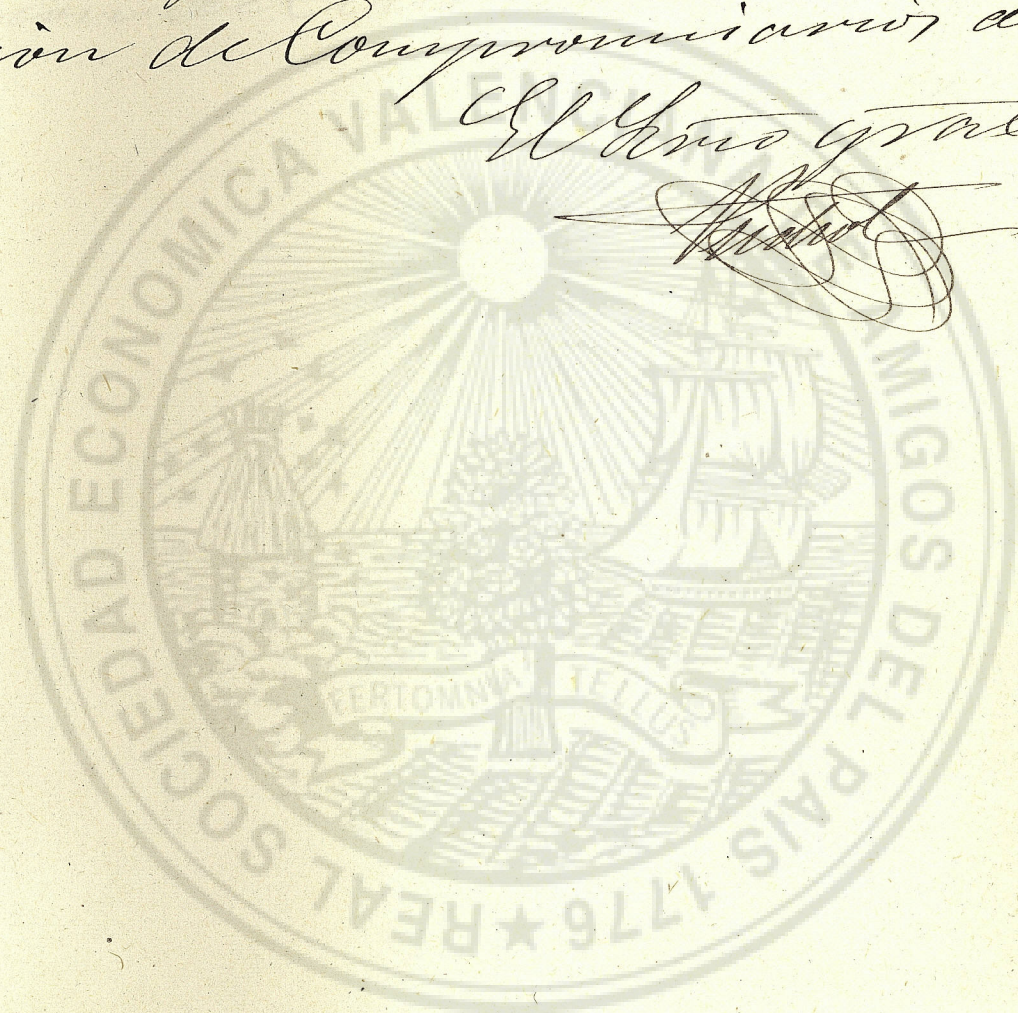 ión de Compromisarios
El Srio gral
REAL SOCIEDAD ECONOMICA VALENCIANA AMIGOS DEL PAIS 1776
FERT OMNIA TELLUS